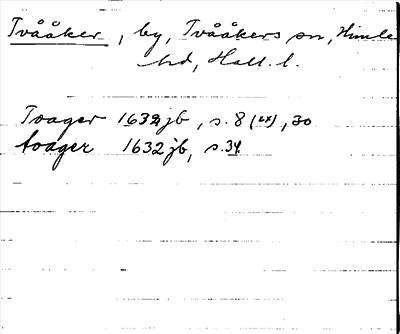 Tvååker, by, Tvååkers sn, Himle
hd, Hall. l.
Toager 1632 jb, s. 8 (2x), 30
toager 1632 jb, s. 34.